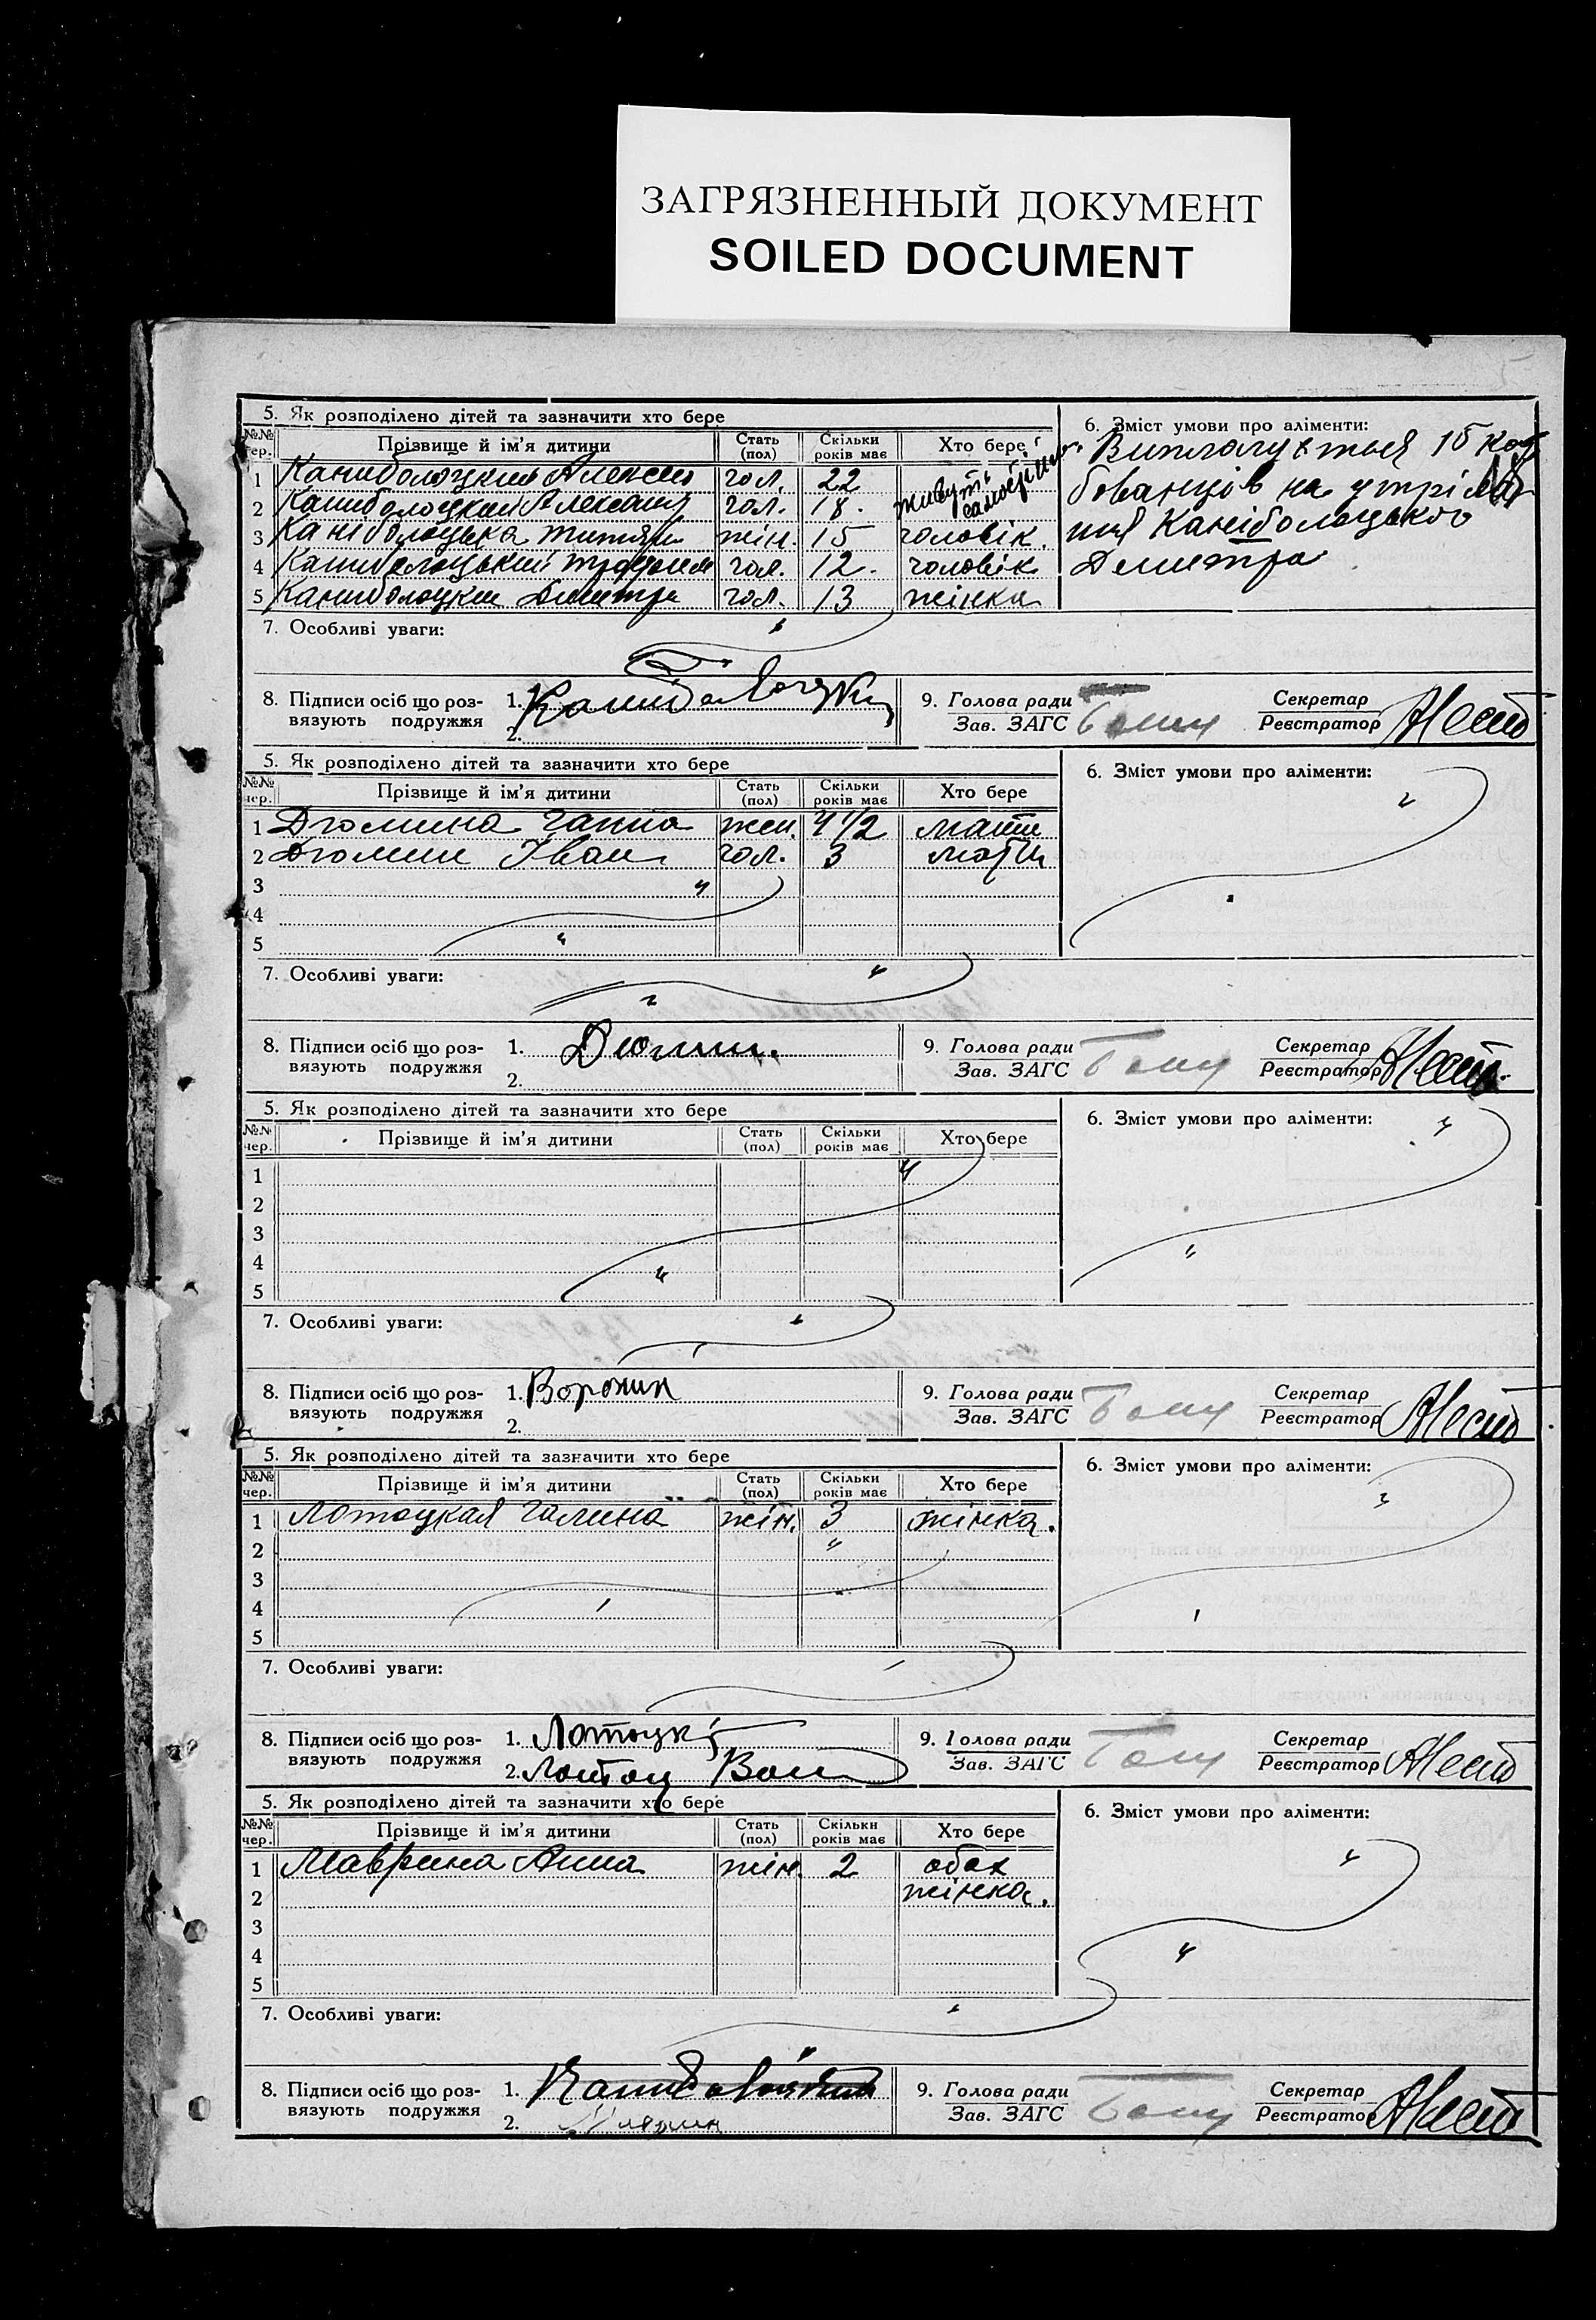 ЗАГРЯЗНЕННЫЙ ДОКУМЕНТ
SOILED DOCUMENT
5. Як розподілено дітей та зазначити хто бере
6. Зміст умови про аліменти:
№№ чер. Прізвище й ім'я дитини Стать (пол) Скільки років має Хто бере
1 Каниболоцкий Алексей чол. 22 живуть
2 Каниболоцкий Александ чол. 18. самостійно
3 Каніболоцька жін. 15 чоловік.
4 Каниболоцький чол. 12. чоловік
5 Каниболоцкий Дмитри чол. 13 жінка
15 кар
бованців на утріман
ня Каніболоцького
Дмитра
7. Особливі уваги:
8. Підписи осіб що роз-
вязують подружжя
1. Каниболоцкий
2.
9. Голова ради
Зав. ЗАГС
Секретар
Реєстратор
5. Як розподілено дітей та зазначити хто бере
6. Зміст умови про аліменти:
№№ чер. Прізвище й ім'я дитини Стать (пол) Скільки років має Хто бере
1 Дюмина Ганна жен. 4 1/2 мати
2 Дюмин Іван чол. 3 мати
3
4
5
7. Особливі уваги:
8. Підписи осіб що роз-
вязують подружжя
1. Дюмин.
2.
9. Голова ради
Зав. ЗАГС
Секретар
Реєстратор
5. Як розподілено дітей та зазначити хто бере
6. Зміст умови про аліменти:
№№ чер. Прізвище й ім'я дитини Стать (пол) Скільки років має Хто бере
1
2
3
4
5
7. Особливі уваги:
8. Підписи осіб що роз-
вязують подружжя
1. Воронин
2.
9. Голова ради
Зав. ЗАГС
Секретар
Реєстратор
5. Як розподілено дітей та зазначити хто бере
6. Зміст умови про аліменти:
№№ чер. Прізвище й ім'я дитини Стать (пол) Скільки років має Хто бере
1 Лотоцкая Галина жін. 3 жінка.
2
3
4
5
7. Особливі уваги:
8. Підписи осіб що роз-
вязують подружжя
1. Лотоцкі
2. Лотоц
9. Голова ради
Зав. ЗАГС
Секретар
Реєстратор
5. Як розподілено дітей та зазначити хто бере
6. Зміст умови про аліменти:
№№ чер. Прізвище й ім'я дитини Стать (пол) Скільки років має Хто бере
1 Маврина Анна жін. 2 обох
2 жінка.
3
4
5
7. Особливі уваги:
8. Підписи осіб що роз-
вязують подружжя
1.
2. Маврин
9. Голова ради
Зав. ЗАГС
Секретар
Реєстратор